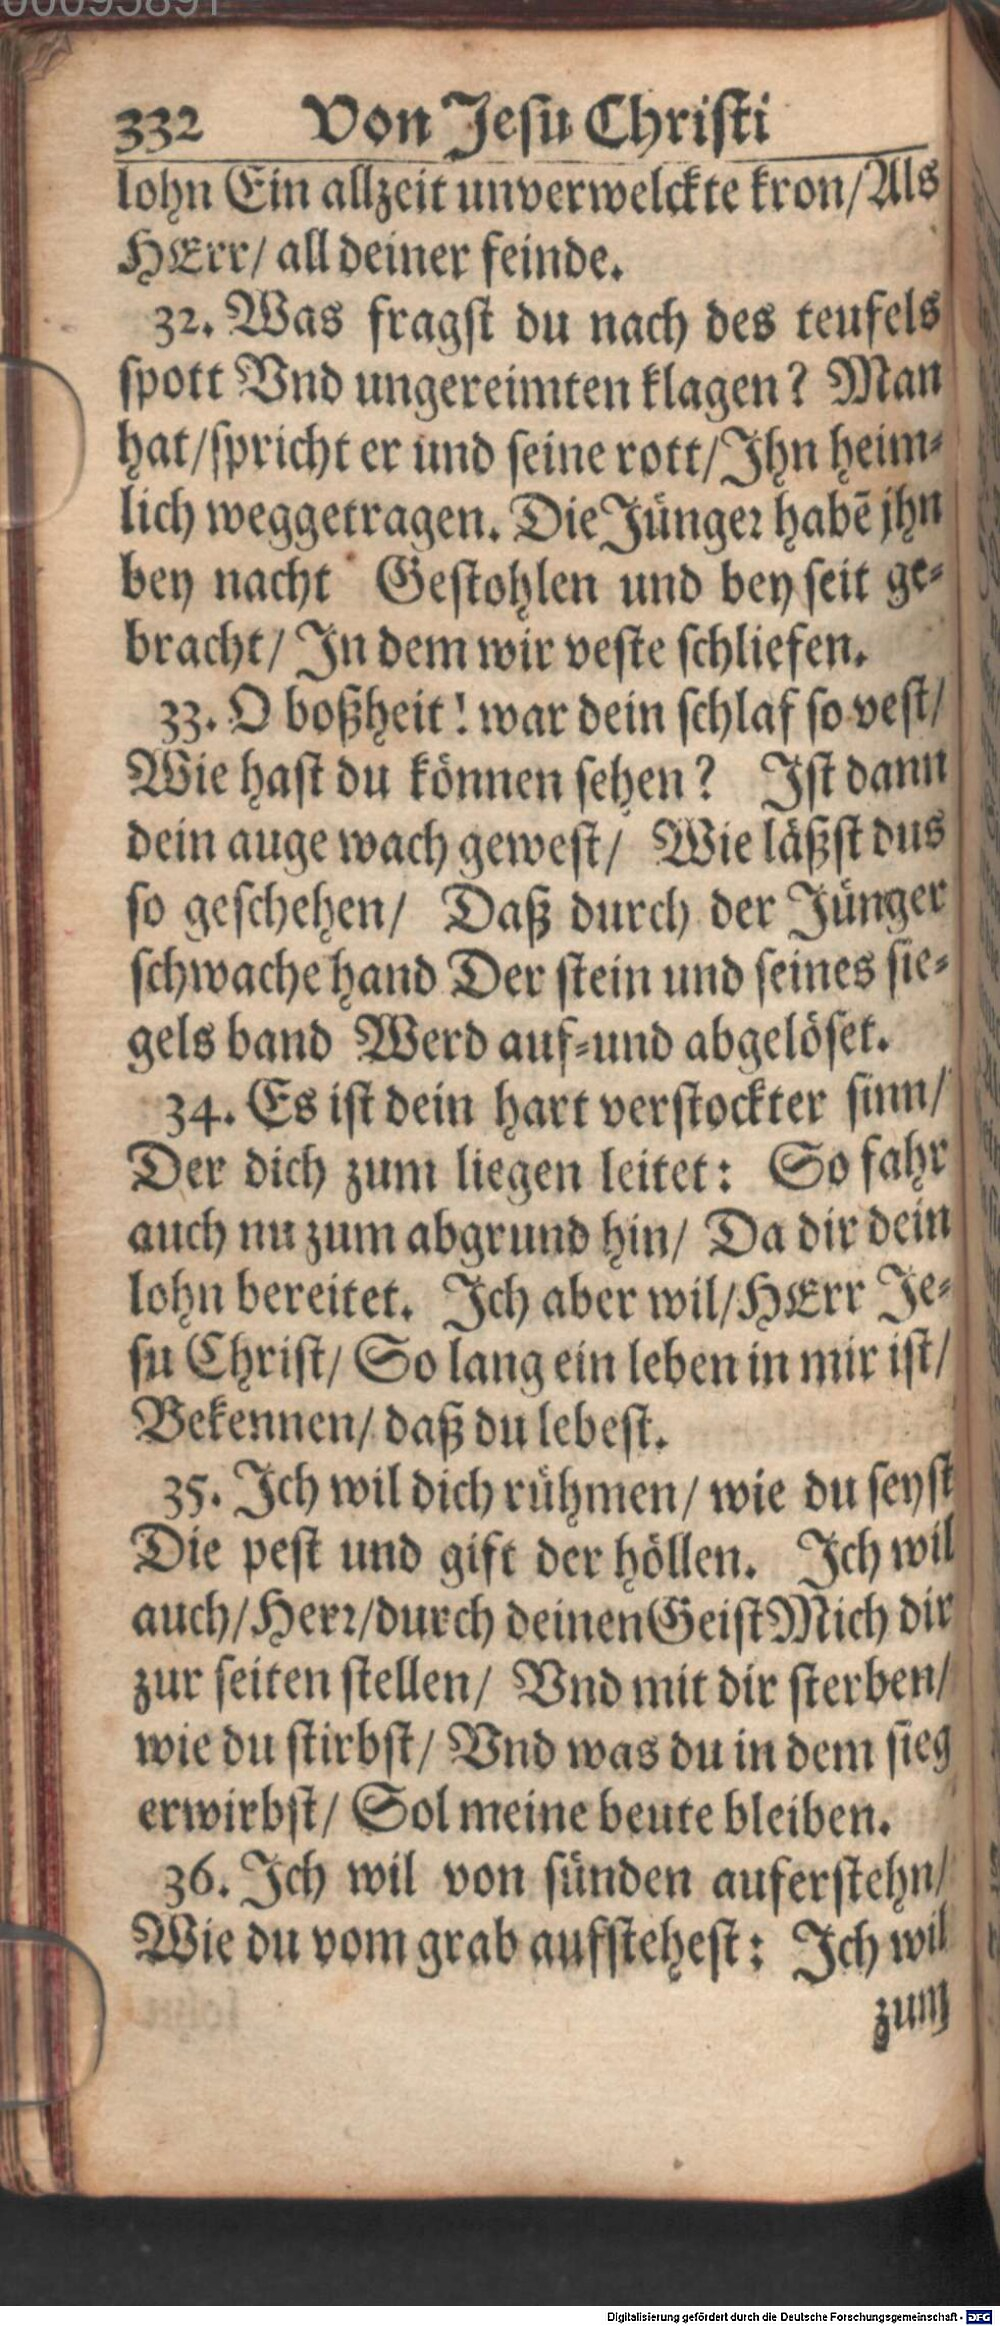 00095891
332 Von Jesu Christi
lohn Ein allzeit unverwelckte kron/Als
HErr/ all deiner feinde.
32. Was fragst du nach des teufels
spott Vnd ungereimten klagen? Man
hat/spricht er und seine rott/Ihn heim-
lich weggetragen. Die Jünger habē jhn
bey nacht Gestohlen und bey seit ge-
bracht/ In dem wir veste schliefen.
33. O boßheit! war dein schlaf so vest/
Wie hast du können sehen? Ist dann
dein auge wach gewest/ Wie läßst dus
so geschehen/ Daß durch der Jünger
schwache hand Der stein und seines sie-
gels band Werd auf-und abgelöset.
34. Es ist dein hart verstockter sinn/
Der dich zum liegen leitet: So fahr
auch nu zum abgrund hin/ Da dir dein
lohn bereitet. Ich aber wil/HErr Je-
su Christ/ So lang ein leben in mir ist/
Bekennen/ daß du lebest.
35. Ich wil dich rühmen/ wie du seyst
Die pest und gift der höllen. Ich wil
auch/Herr/durch deinen Geist Mich dir
zur seiten stellen/ Vnd mit dir sterben/
wie du stirbst/ Vnd was du in dem sieg
erwirbst/ Sol meine beute bleiben.
36. Ich wil von sünden auferstehn/
Wie du vom grab aufstehest: Ich wil
zum
Digitalisierung gefördert durch die Deutsche Forschungsgemeinschaft - DFG